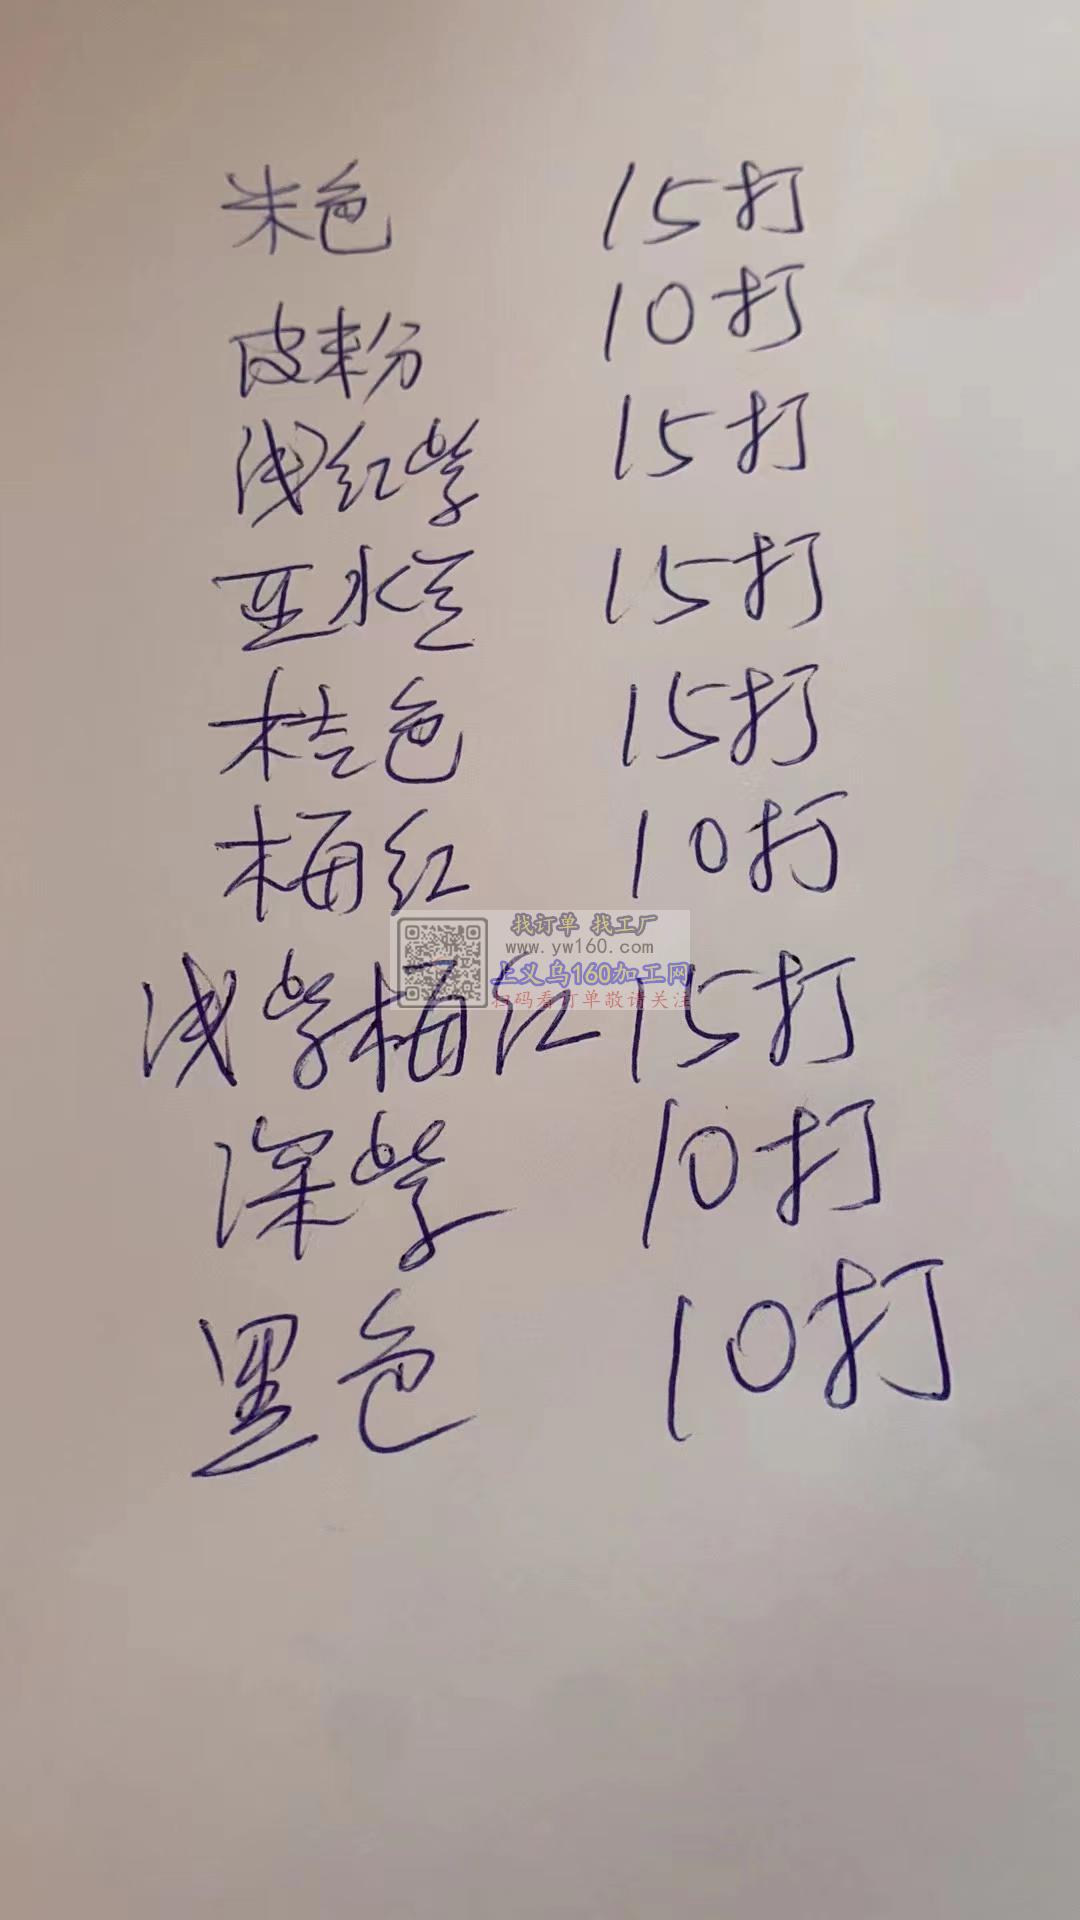 朱色 15打
皮粉 10打
浅红紫 15打
亚水兰 15打
桔色 15打
梅红 10打
找订单 找工厂
www.yw160.com
上义乌160加工网
扫码看订单敬请关注
浅紫梅红 15打
深紫 10打
黑色 10打